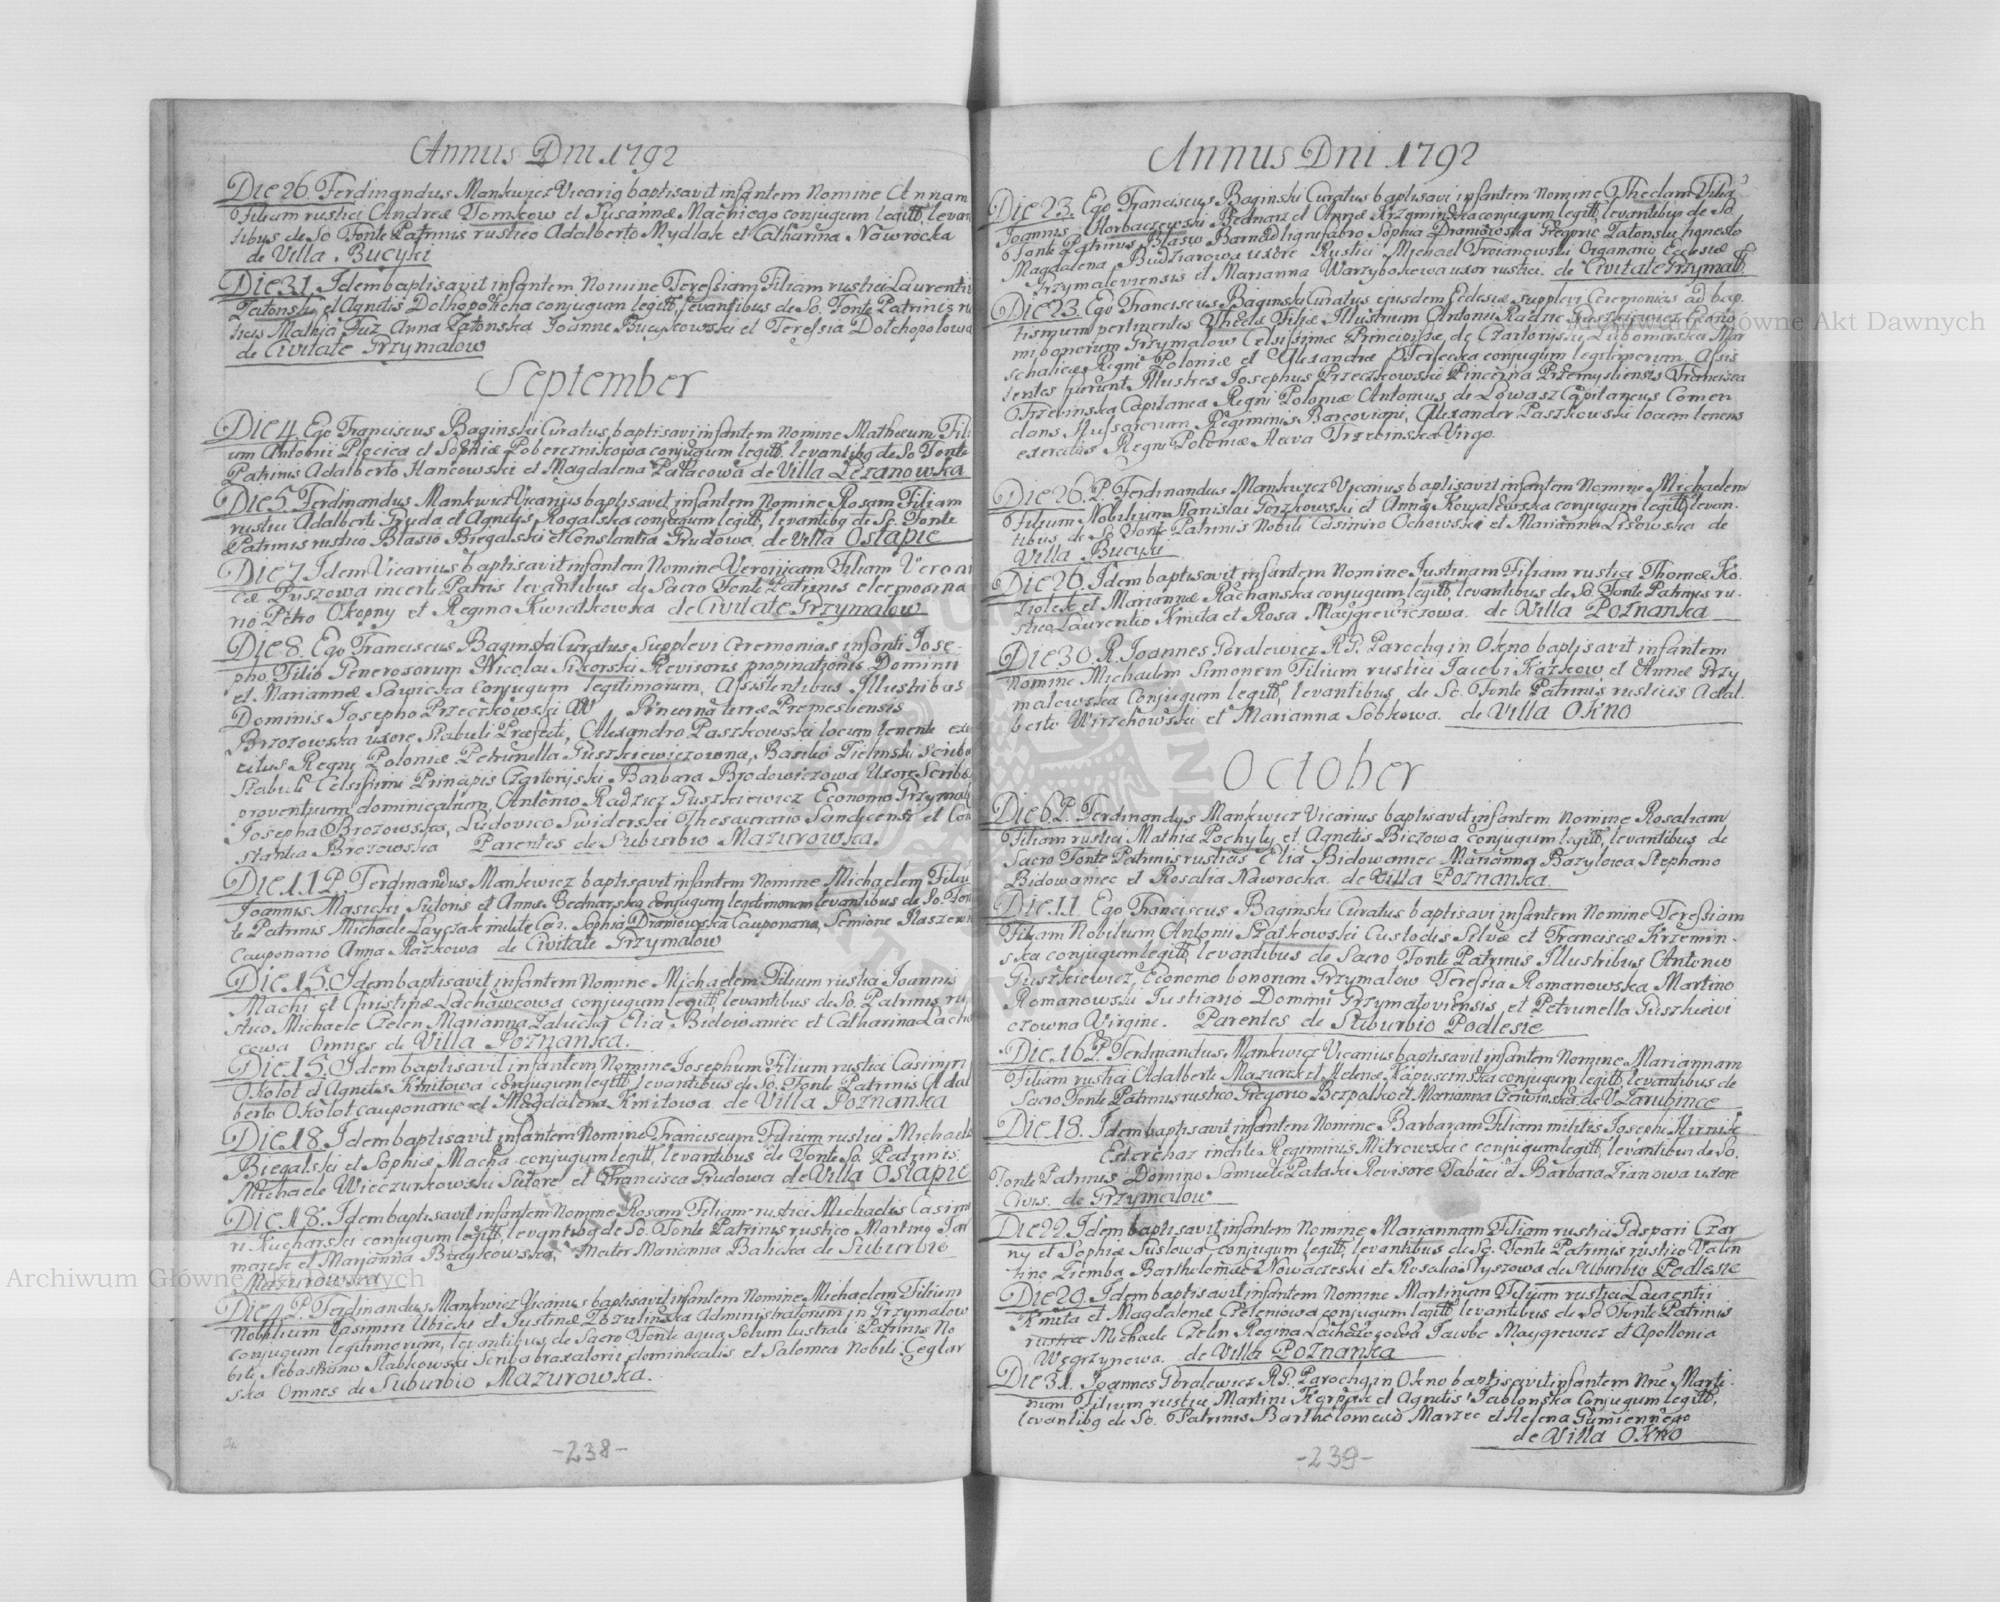 Annus Dni 1792
Die 26. Ferdinandus Mankwicz Vicariq baptisavit infantem Nomine Annam
Filiam rustici Andreæ Tomkow et Susannæ Machiego conjugum legitt, levan
tibus de So Fonte Patrinis rustico Adalberto Mydlak et Catharina Nawrocka
de Villa Bucyki
Die 31. Idem baptisavit infantem Nomine Teressiam Filiam rustici Laurentii
Zatonski, et Agnetis Dolhopolicha conjugum legitt, levantibus de So. Fonte Patrinis ru
ticis Mathia Fuz Anna Zatonska Joanne Bucykowski et Teressia Dolchopolowa
de Civitate Grzymalow
September
Die 4. Ego Franciscus Baginski Curatus baptisavi infantem Nomine Mathæum Fili
um Antonii Plocica et Sophiæ Pobereznikowa conjugum legitt. levantibq de So Fonte
Patrinis Adalberto Hancowski et Magdalena Palacowa de Villa Lezanowka
Die 5. Ferdinandus Mankwicz Vicarius baptisavit infantem Nomine Rosam Filiam
rustici Adalberti Gruda et Agnetis Rogalska conjugum legitt, levantibq de Sc. Fonte
Patrinis rustico Blasio Biegalski et Constantia Grudowa. de Villa Ostapie
Die 7. Idem Vicarius baptisavit infantem Nomine Veronicam Filiam Veroni
cæ Puszowa incerti Patris levantibus de Sacro Fonte Patrinis eleemosina
rio Petro Okopny et Regina Kwiatkowska de Civitate Grzymalow
Die 8. Ego Franciscus Baginski Curatus Supplevi Ceremonias infanti Jose
pho Filio Generosorum Nicolai Sikorski Revisoris propinationis Dominii
et Mariannæ Sawicka Conjugum legitimorum, Assistentibus Illustribus
Dominis Josepho Przeczkowski Pincerna terræ Premesliensis
Brzozowska uxore Stabuli Præfecti, Alexandro Paszkowski locum tenente exer
citus Regni Poloniæ Petrunella Guszkiewiczowna, Basilio Zielinski Scriba
Stabuli Celsissimi Principis Czartoryski Barbara Brodowiczowa Uxore Scribæ
proventuum dominicalium, Antonio Radzicz Guszkiewicz Economo Grzymal
Josepha Brozowska, Ludovico Swiderski Thesaurario Sandecensi et Con
stantia Brozowska Parentes de Suburbio Mazurowka.
Die 11 P. Ferdinandus Mankwicz baptisavit infantem Nomine Michaelem Filiu
Joannis Masicki Sutoris et Annæ Bednarska conjugum legitimorum levantibus de So. Fon
te Patrinis Michaele Layczak milite Cæs. Sophia Dramowska Cauponaria, Semione Naszew
Cauponario Anna Kazkowa de Civitate Grzymalow
Die 15. Idem baptisavit infantem Nomine Michaelem Filium rustici Joannis
Machi et Christinæ Lachawcowa conjugum legitt, levantibus de So. Patrinis ru
stico Michaele Czelen Marianna Zalucka Elia Bidowaniec et Catharina Lacha
cowa Omnes de Villa Poznanka.
Die 15. Idem baptisavit infantem Nomine Josephum Filium rustici Casimiri
Okolot et Agnetis Kmitowa conjugum legitt, levantibus de So. Fonte Patrinis Adal
berto Okolot cauponario et Magdalena Kmitowa de Villa Poznanka
Die 18. Idem baptisavit infantem Nomine Franciscum Filium rustici Michaeli
Biegalski et Sophiæ Macha conjugum legitt, levantibus de Fonte So. Patrinis
Michaele Wieczurkowski Sutore et Francisca Grudowa de Villa Ostapie
Die 18. Idem baptisavit infantem Nomine Rosam Filiam rustici Michaelis Casimi
ri Kucharski conjugum legitt, levantibq de So. Fonte Patrinis rustico Martino Jar
marek et Marianna Bucykowska, Mater Marianna Balicka de Suburbio
Mazurowka
Die 4. P. Ferdinandus Mankwicz Vicarius baptisavit infantem Nomine Michaelem Filium
Nobilium Casimiri Ubicki et Justinæ Pozulinska Administratorum in Grzymalow
conjugum legitimorum, levantibus de Sacro Fonte aqua Solum lustrali Patrinis No
bile Sebastiano Slabkowski Scriba braxatorii dominicalis et Salomea Nobili Ceglar
ska Omnes de Suburbio Mazurowka.
-238-
Annus Dni 1792
Die 23. Ego Franciscus Baginski Curatus baptisavi infantem Nomine Theclam Filia
Joannis Horbaczewski Bednarz et Annæ Krzeminska conjugum legitt, levantibus de So
Fonte Patrinis Blasio Barnad lignifabro Sophia Dramowska Gregorio Zatonski
Magdalena Budziarowa uxore Rustici Michael Troianowski Organario Ecclesiæ
Grzymaloviensis et Marianna Warzybokowa uxor rustici. de Civitate Grzymall
Die 23. Ego Franciscus Baginski Curatus ejusdem Ecclesiæ supplevi Ceremonias ad bap.
tismum pertinentes Theclæ Filiæ Illustrium Antonii Radzic Guszkiewicz Econo
mi bonorum Grzymalow Celsissimæ Principissæ de Czartoryski Lubomirska Mar
schalicæ Regni Poloniæ et Alexandræ Terlecka conjugum legitimorum. Assis
tentes fuerunt Illustres Josephus Przeczkowski Pincerna Przemysliensis Francisca
Trzecinska Capitanea Regni Poloniæ Antonius de Lowasz Capitaneus Comen
dans Hussarorum Regiminis Barcoviani, Alexander Paszkowski locum tenens
exercitus Regni Poloniæ Trzecinska Virgo.
Die 26. P. Ferdinandus Mankwicz Vicarius baptisavit infantem Nomine Michaelem
Filium Nobilium Stanislai Gorzkowski et Annæ Kowalewska conjugum legitt, levan.
tibus de So. Fonte Patrinis Nobili Casimiro Ochowski et Marianna Lisowska de
Villa Bucyki
Die 26. Idem baptisavit infantem Nomine Justinam Filiam rustici Thomæ Ko.
ziolek et Mariannæ Rachanska conjugum legitt, levantibus de So. Fonte Patrinis ru.
stico Laurentio Kmita et Rosa Maygrewiczowa. de Villa Poznanka
Die 30. R. Joannes Goralewicz RG. Parochq in Okno baptisavit infantem
Nomine Michaelem Simonem Filium rustici Jacobi Kazkow, et Annæ Grzy
malowska Conjugum legitt, levantibus, de Sc. Fonte Patrinis rusticis Adal.
berto Wirzchowski et Marianna Sobkowa. de Villa Okno
October
Die 6 P. Ferdinandus Mankwicz Vicarius baptisavit infantem Nomine Rosaliam
Filiam rustici Mathiæ Pochyly et Agnetis Biczowa conjugum legitt, levantibus de
Sacro Fonte Patrinis rusticis Elia Bidowaniec Marianna Bazylowa Stephano
Bidowaniec et Rosalia Nawrocka. de Villa Poznanka.
Die 11. Ego Franciscus Baginski Curatus baptisavi infantem Nomine Teressiam
Filiam Nobilium Antonii Szatkowski Custodis Silvæ et Franciscæ Krzemin.
ska conjugum legitt, levantibus de Sacro Fonte Patrinis Illustribus Antonio
Guszkiewicz Economo bonorum Grzymalow Teressia Romanowska Martino
Romanowski Justiario Dominii Grzymaloviensis, et Petrunella Guszkiewi
czowna Virgine. Parentes de Suburbio Podlesie
Die 16 P. Ferdinandus Mankwicz Vicarius baptisavit infantem Nomine Mariannam
Filiam rustici Adalberti Mazurek et Helenæ Kapuscinska conjugum legitt, levantibus de
Sacro Fonte Patrinis rustico Gregorio Bezpalko et Marianna Czerwinska. de V. Zarubince
Die 18. Idem baptisavit infantem Nomine Barbaram Filiam militis Josephi Hirniak
Esterchaz inclite Regiminis Mitrowski c conjugum legitt, levantibus de So.
Fonte Patrinis Domino Samuele Zataski Revisore Tabaci et Barbara Zianowa uxore
Civis. de Grzymalow
Die 22. Idem baptisavit infantem Nomine Mariannam Filiam rustici Gaspari Czar
ny et Sophiæ Suslowa, conjugum legitt, levantibus de So. Fonte Patrinis rustico Valen
tino Ziemba Bartholomæo Nowaczeski et Rosalia Slyszowa de Suburbio Podlesie
Die 29. Idem baptisavit infantem Nomine Martinum Filium rustici Laurentii
Kmita et Magdalenæ Czeleniowa conjugum legitt, levantibus de So Fonte Patrinis
rustico Michaele Czelen Regina Lachawcowa Jacobo Maygrewicz et Apollonia
Wegrzynowa. de Villa Poznanka
Die 31. Joannes Goralewicz RG. Parochq in Okno baptisavit infantem Nne Marti.
num Filium rustici Martini Kgrppk et Agnetis Jablonska conjugum legitt,
levantibq de So. Patrinis Bartholomeo Marzec et Helena Gumiennego
de Villa Okno
-239-
Archiwum Główne Akt Dawnych
Archiwum Główne Akt Dawnych